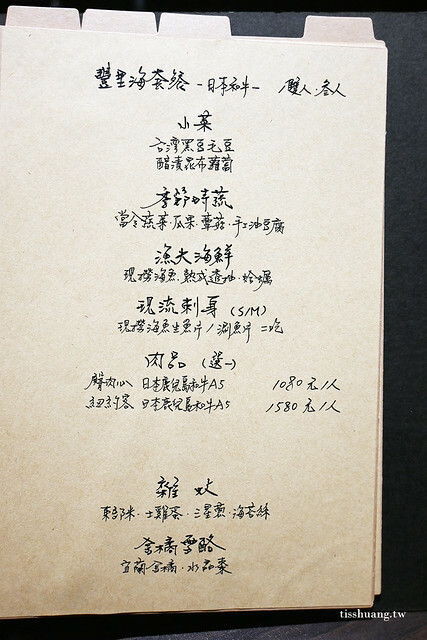 豐里海套餐 -日本和牛- 雙人.叁人
小菜
台灣黑豆毛豆
醋漬昆布蘿蔔
季節時蔬
當令蔬菜.瓜果.蕈菇.手工油豆腐
漁夫海鮮
現撈海魚.熟成透抽.蛤蠣
現流刺身 (S/M)
現撈海魚生魚片/涮魚片 二吃
肉品 (選一)
臀肉心 日本鹿兒島和牛A5 1080元/人
紐約客 日本鹿兒島和牛A5 1580元/人
雜炊
東部米.土雞蛋.三星蔥.海苔絲
金橘雪酪
宜蘭金橘.水晶棗
tisshuang.tw